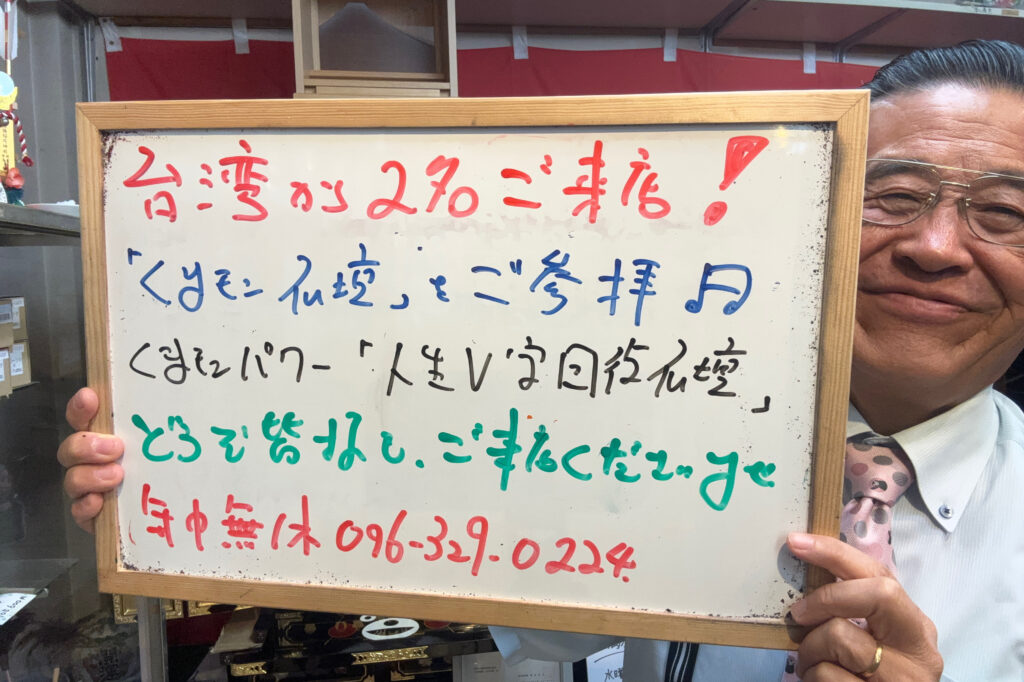 台湾から2名ご来店!
「くまモン仏壇」をご参拝
くまモンパワー「人生V字回復仏壇」
どうぞ皆様も、ご来店くださいませ
年中無休 096-329-0224